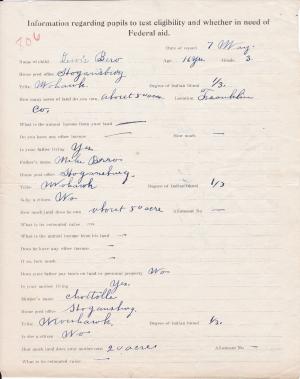 806
Information regarding pupils to test eligibility and whether in need of
Federal aid.
Date of report 7 May
Name of child Bero Age 16 yrs Grade 3.
Home post office Hogansburg
Tribe Mohawk Degree of Indian blood 1/3.
How many acres of land do you own about 50 acre Location Franklin
Co.
What is the annual income from your land —
Do you have any other income — How much —
Is your father living Yes
Father's name Mike Berro
Home post office Hogansburg.
Tribe Mohawk Degree of Indian blood 1/3
Is he a citizen No
How much land does he own about 50 acre Allotment No —
What is its estimated value —
What is the annual income from his land —
Does he have any other income —
If so, how much —
Does your father pay taxes on land or personal property No
Is your mother living Yes.
Mother's name
Home post office Hogansburg.
Tribe Mowhawk Degree of Indian blood 1/3.
Is she a citizen No
How much land does your mother own 20 acres Allotment No —
What is its estimated value —